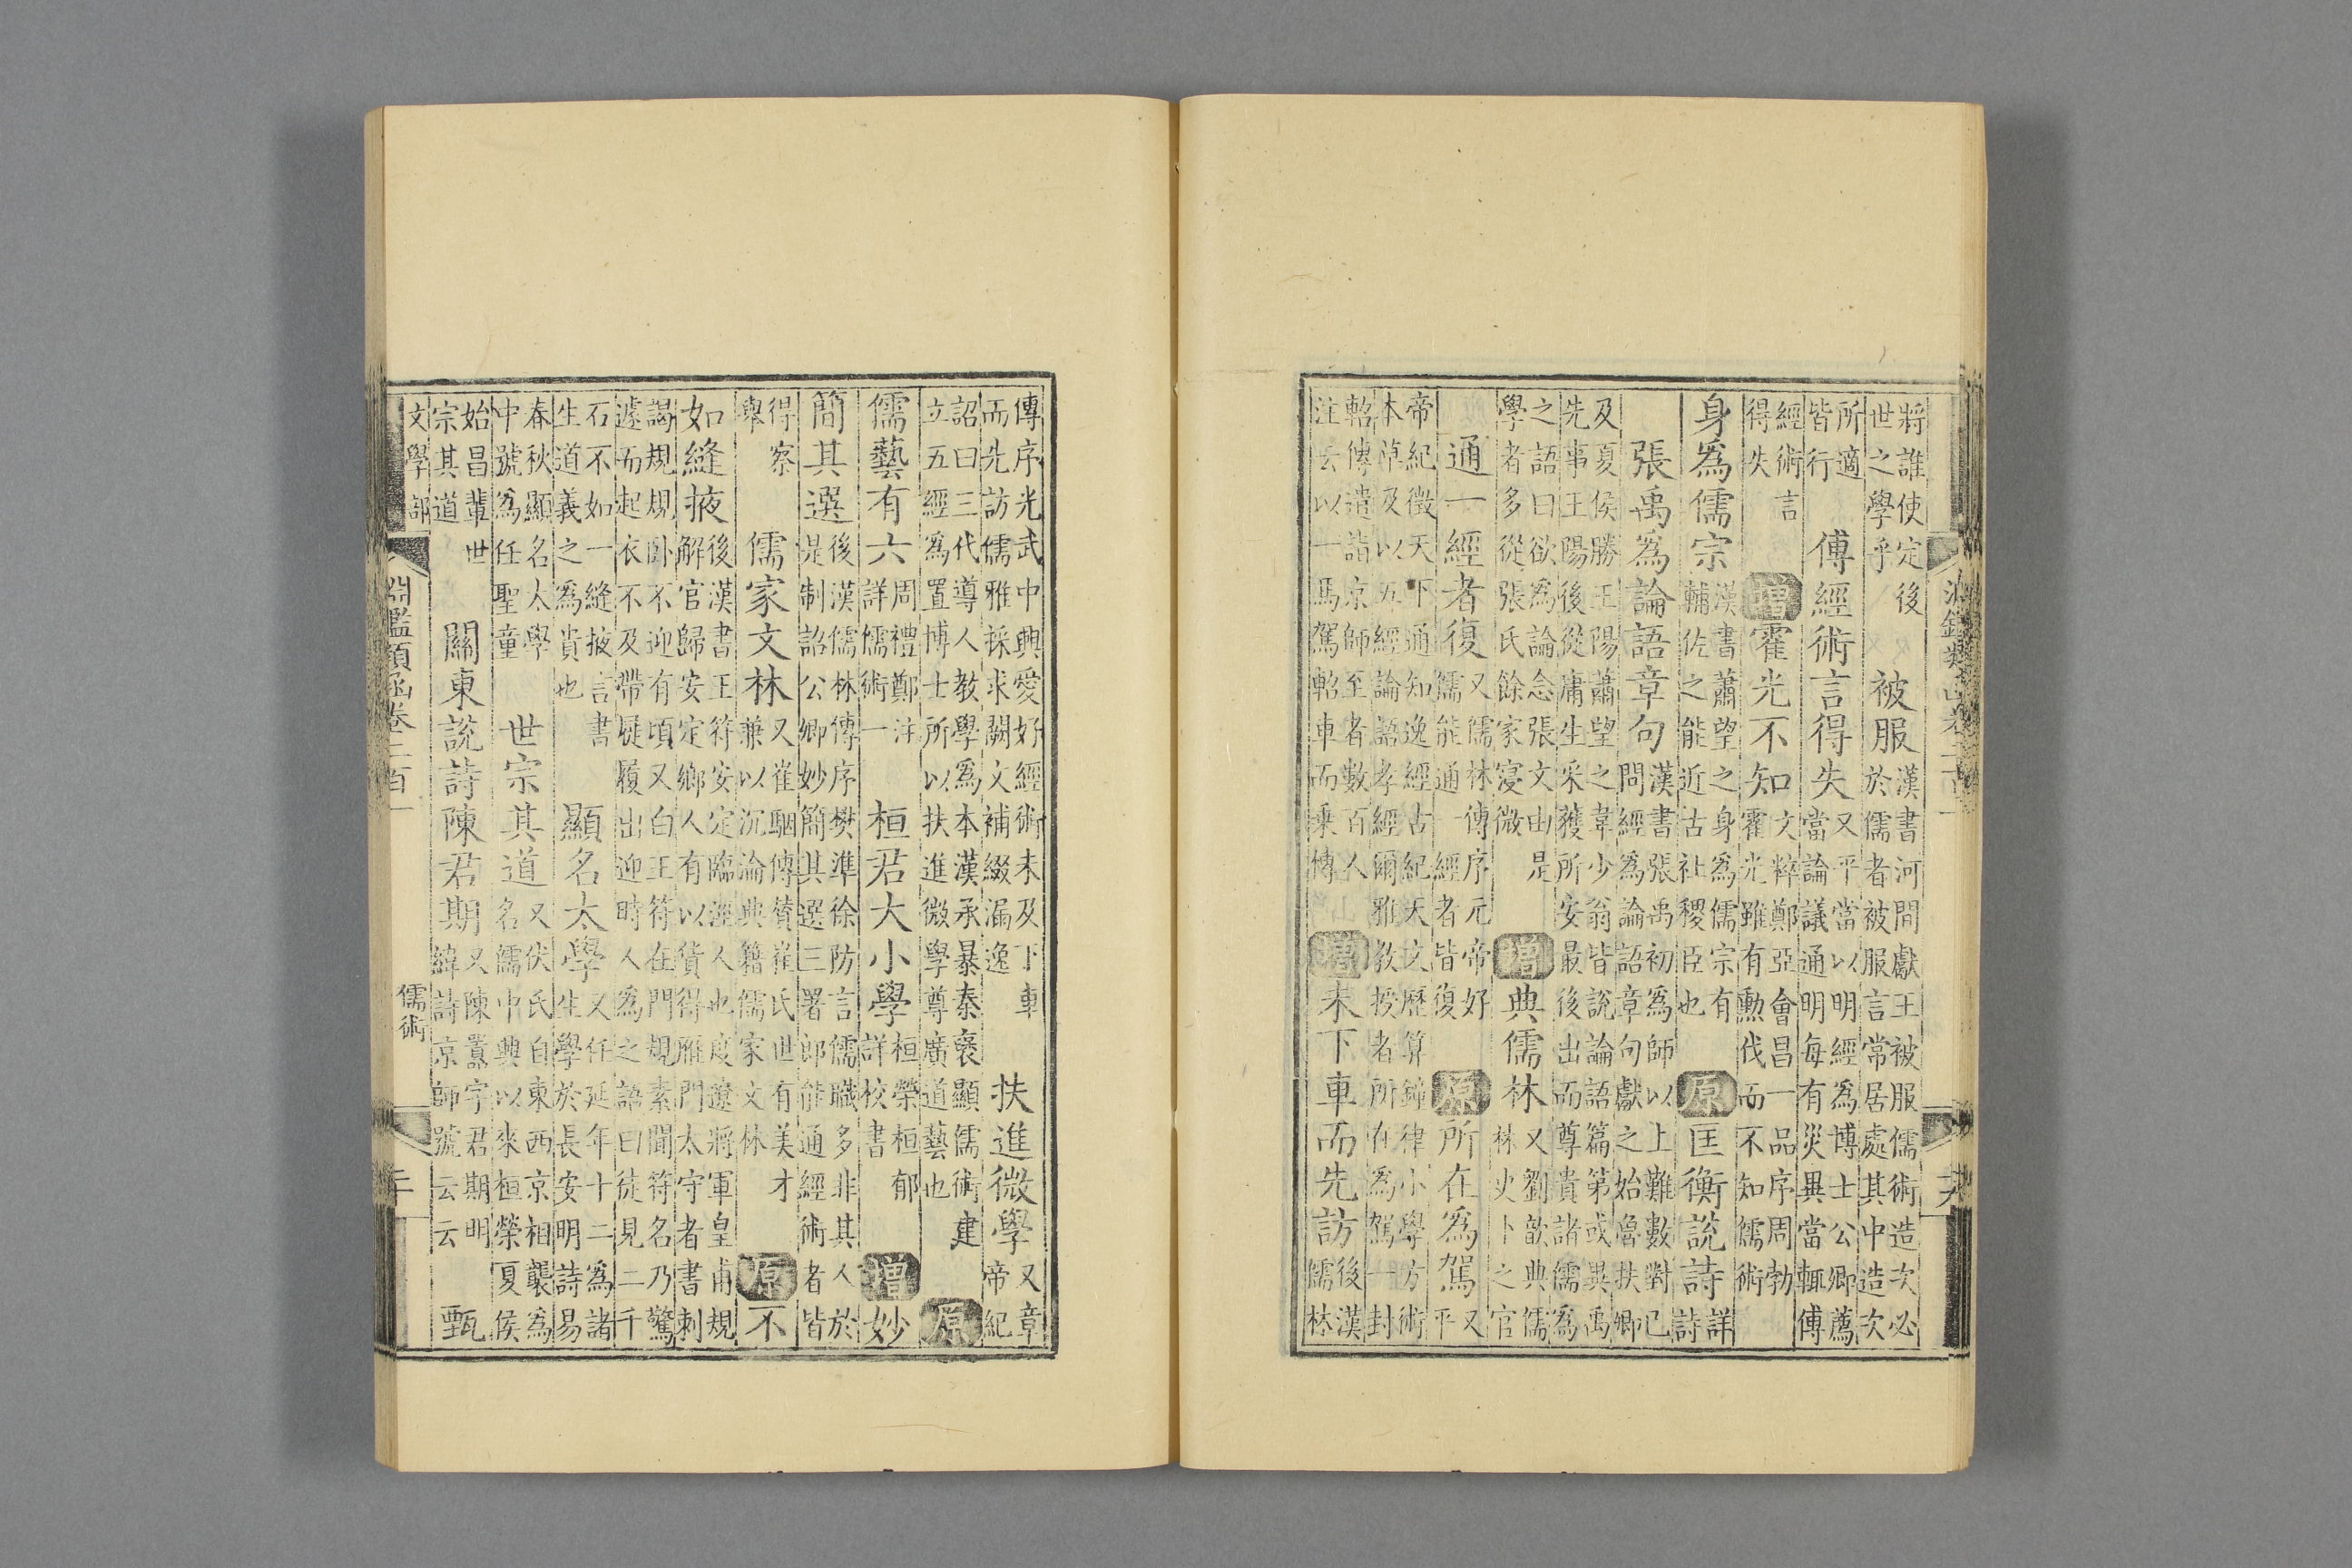 將誰使定後
世之學乎
被服
漢書河間獻王被服儒術造次必
於儒者被服言常居處其中造次
所適
皆行
傅經術言得失
又平當以明經為博士公卿薦
當論議通明每有災異當輒傅
經術言
得失
增霍光不知
文粹鄭亞會昌一品序周勃
霍光雖有勳伐而不知儒術
身爲儒宗
漢書蕭望之身爲儒宗有
輔佐之能近古社稷臣也
原匡衡說詩
詳
詩
張禹爲論語章句
漢書張禹初為師以上難數對已
問經為論詔章句獻之始魯扶卿
及夏侯勝王陽蕭望之韋少翁皆說論語篇第或異禹
先事王陽後從庸生采獲所安最後出而尊貴諸儒為
之語曰欲為論念張文由是
學者多從張氏餘家寖微
增典儒林
又劉歆典儒
林史卜之官
通一經者復
又儒林傳序元帝好
儒能通一經者皆復
原所在爲駕
又
平
帝紀徵天下通知逸經古紀天文歷算鍾律小學方術
本草及以五經論語孝經爾雅教授者所在為駕一封
軺傳遣詣京師至者數百人
注云以一馬駕軺車而乘傳
增未下車而先訪
後漢
儒林
傳序光武中興愛好經術未及下車
而先訪儒雅採求闕文補綴漏逸
扶進微學
又章
帝紀
詔曰三代導人教學為本漢承暴秦褒顯儒術建
立五經為置博士所以扶進微學尊廣道藝也
原
儒藝有六
周禮鄭注
詳儒術一
桓君大小學
桓榮桓郁
詳校書
增妙
簡其選
後漢儒林傳序樊準徐防言儒職多非其人於
是制詔公卿妙簡其選三署郎能通經術者皆
得察
舉
儒家文林
又崔駰傳贊崔氏世有美才
兼以沉淪典籍儒家文林
原不
如縫掖
後漢書王符安定臨涇人也度遼將軍皇甫規
解官歸安定鄉人有以貨得雁門太守者書刺
謁規規卧不迎有頃又白王符在門規素聞符名乃驚
遽而起衣不及帶屣履出迎時人為之語曰徒見二千
石不如一縫掖言書
生道義之為貴也
顯名太學
又任延年十二為諸
生學於長安明詩易
春秋顯名太學
中號為任聖童
世宗其道
又伏氏自東西京相襲為
名儒中興以來桓榮夏侯
始昌輩世
宗其道
關東說詩陳君期
又陳囂字君期明
緯詩京師號云云
甄
文學部
淵鑑類函卷二百一
儒術